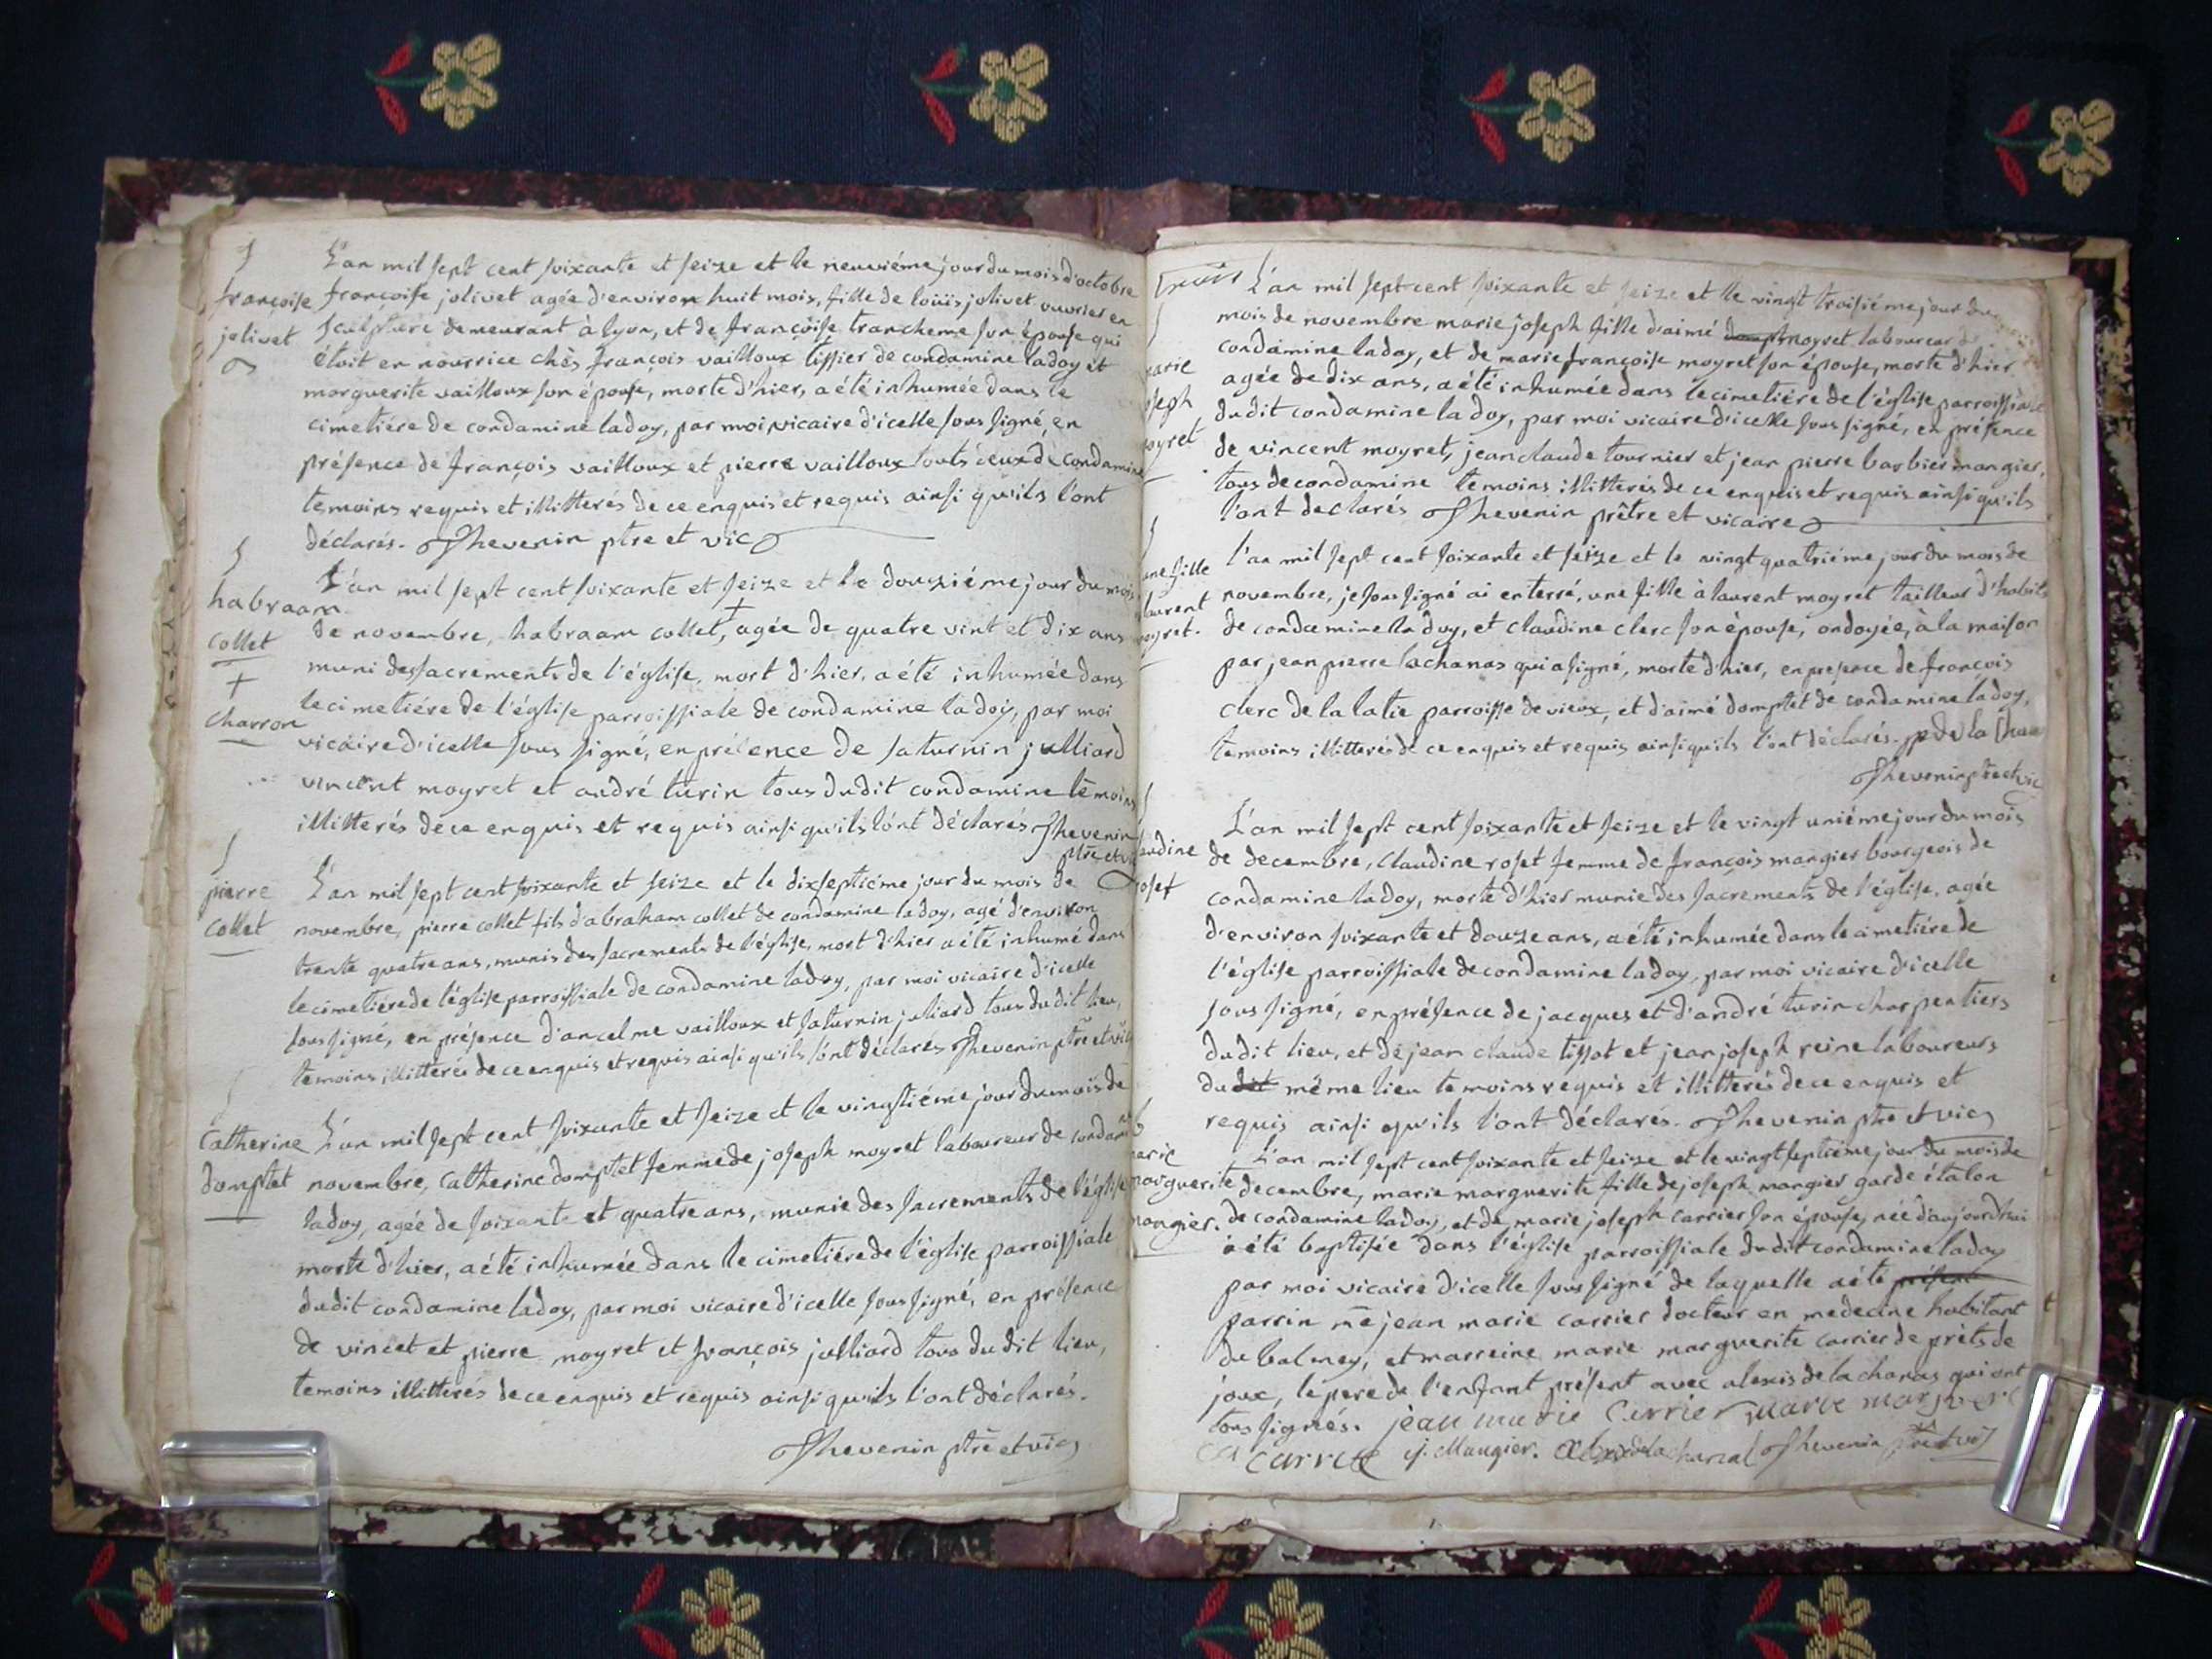 L'an mil sept cent soixante et seize et le neuviéme jour du mois d'octobre
françoise
françoise jolivet agée d'environ huit mois, fille de loüis jolivet ouvrier en
jolivet
sculpture demeurant à lyon, et de françoise trancheme son épouse qui
étoit en nourrice chès françois vailloux tissier de condamine ladoy et
marguerite vailloux son épouse, morte d'hier, a été inhumée dans le
cimetiére de condamine ladoy, par moi vicaire d'icelle sous signé, en
présence de françois vailloux et pierre vailloux touts ceux de condamine
temoins requis et illitterés de ce enquis et requis ainsi qu'ils l'ont
déclarés. Thevenin ptre et vic
habraam
collet
+
charron
L'an mil sept cent soixante et seize et le douziéme jour du mois
de novembre, habraam collet, + agée de quatre vint et dix ans
muni des sacrements de l'église, mort d'hier, a été inhumée dans
le cimetiére de l'église parroissiale de condamine ladoy, par moi
vicaire d'icelle sous signé, en présence de saturnin julliard
vincent moyret et andré turin tous du dit condamine témoins
illitterés de ce enquis et requis ainsi qu'ils l'ont déclarés Thevenin
ptre et vic
pierre
collet
L'an mil sept cent soixante et seize et le dixseptiéme jour du mois de
novembre, pierre collet fils d'abraham collet de condamine ladoy, agé d'environ
trente quatre ans, munis des sacrements de l'église, mort d'hier a été inhumé dans
le cimetiére de l'église parroissiale de condamine ladoy, par moi vicaire d'icelle
sous signé, en présence d'ancelme vailloux et saturnin juliard tous du dit lieu,
temoins illitterés de ce enquis et requis ainsi qu'ils l'ont déclarés Thevenin ptre et vic
Catherine
domptet
L'an mil sept cent soixante et seize et le vingtiéme jour du mois de
novembre, Catherine domptet femme de joseph moyret laboureur de condamine
ladoy, agée de soixante et quatre ans, munie des sacrements de l'église
morte d'hier, a été inhumée dans le cimetiére de l'église parroissiale
dudit condamine ladoy, par moi vicaire d'icelle sous signé, en présence
de vincet et pierre moyret et françois julliard tous du dit lieu,
temoins illitterés de ce enquis et requis ainsi qu'ils l'ont déclarés.
Thevenin ptre et vic
L'an mil sept cent soixante et seize et le vingt troisiéme jour du
mois de novembre marie joseph fille d'aimé moyret laboureur de
arie
condamine ladoy, et de marie françoise moyret son épouse, morte d'hier
oseph
agée de dix ans, a été inhumée dans le cimetiére de l'église parroissiale
oyret
dudit condamine ladoy, par moi vicaire d'icelle sous signé, en présence
de vincent moyret, jean claude tournier et jean pierre barbier mangier,
tous de condamine temoins illitterés de ce enquis et requis ainsi qu'ils
l'ont declarés Thevenin prêtre et vicaire
une fille
laurent
oyret.
l'an mil sept cent soixante et seize et le vingt quatriéme jour du mois de
novembre, je sous signé ai enterré, une fille à laurent moyret tailleur d'habits
de condamine ladoy, et claudine clerc son épouse, ondoyée, à la maison
par jean pierre lachanas qui a signé, morte d'hier, en presence de françois
clerc de la latie parroisse de vieux, et d'aimé domptet de condamine ladoy,
temoins illitterés de ce enquis et requis ainsi qu'ils l'ont déclarés.
Thevenin ptre et vic
L'an mil sept cent soixante et seize et le vingt uniéme jour du mois
audine
roset
de decembre, Claudine roset femme de françois mangier bourgeois de
condamine ladoy, morte d'hier munie des sacrements de l'église, agée
d'environ soixante et douze ans, a été inhumée dans le cimetiére de
l'église parroissiale de condamine ladoy, par moi vicaire d'icelle
sous signé, en présence de jacques et d'andré turin charpentiers
du dit lieu, et de jean claude tissot et jean joseph reine laboureurs
du dit même lieu temoins requis et illitterés de ce enquis et
requis ainsi qu'ils l'ont déclarés. Thevenin ptre et vic
b
arie
marguerite
mangier.
L'an mil sept cent soixante et seize et le vingt septiéme jour du mois de
decembre, marie marguerite fille de joseph mangier garde étalon
de condamine ladoy, et de marie joseph carrier son épouse, née d'aujourdhui
a été baptisée dans l'église parroissiale dudit condamine ladoy
par moi vicaire d'icelle sous signé de laquelle a été présent
parrin me jean marie carrier docteur en medecine habitant
du balmey, et marreine marie marguerite carrier de prèts de
joux, le pere de l'enfant présent avec alexis de lachanas qui ont
tous signés. jean marie Carrier marie marguer
Carrier j. Mangier. Thevenin ptre et vic